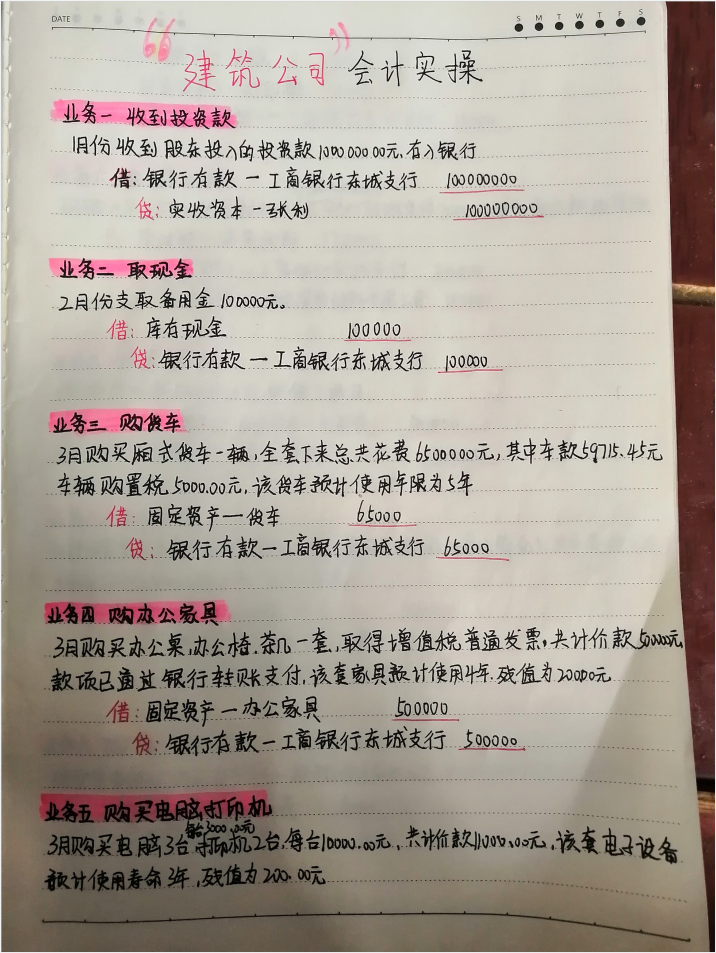 DATE
S M T W T F S
“建筑公司”会计实操
业务一 收到投资款
1月份收到股东投入的投资款1000000.00元,存入银行
借:银行存款一工商银行东城支行 100000000
贷:实收资本一张利 100000000
业务二 取现金
2月份支取备用金100000元。
借:库存现金 100000
贷:银行存款一工商银行东城支行 100000
业务三 购货车
3月购买厢式货车一辆,全套下来总共花费6500000元,其中车款59715.45元
车辆购置税5000.00元,该货车预计使用年限为5年
借:固定资产一货车 65000
贷:银行存款一工商银行东城支行 65000
业务四 购办公家具
3月购买办公桌,办公椅.茶几一套,取得增值税普通发票,共计价款50000元
款项已通过银行转账支付,该套家具预计使用4年.残值为20000元
借:固定资产一办公家具 500000
贷:银行存款一工商银行东城支行 500000
业务五 购买电脑打印机
每台3000.00元
3月购买电脑3台打印机2台,每台10000.00元,共计价款11000.00元,该套电子设备
预计使用寿命3年,残值为200.00元